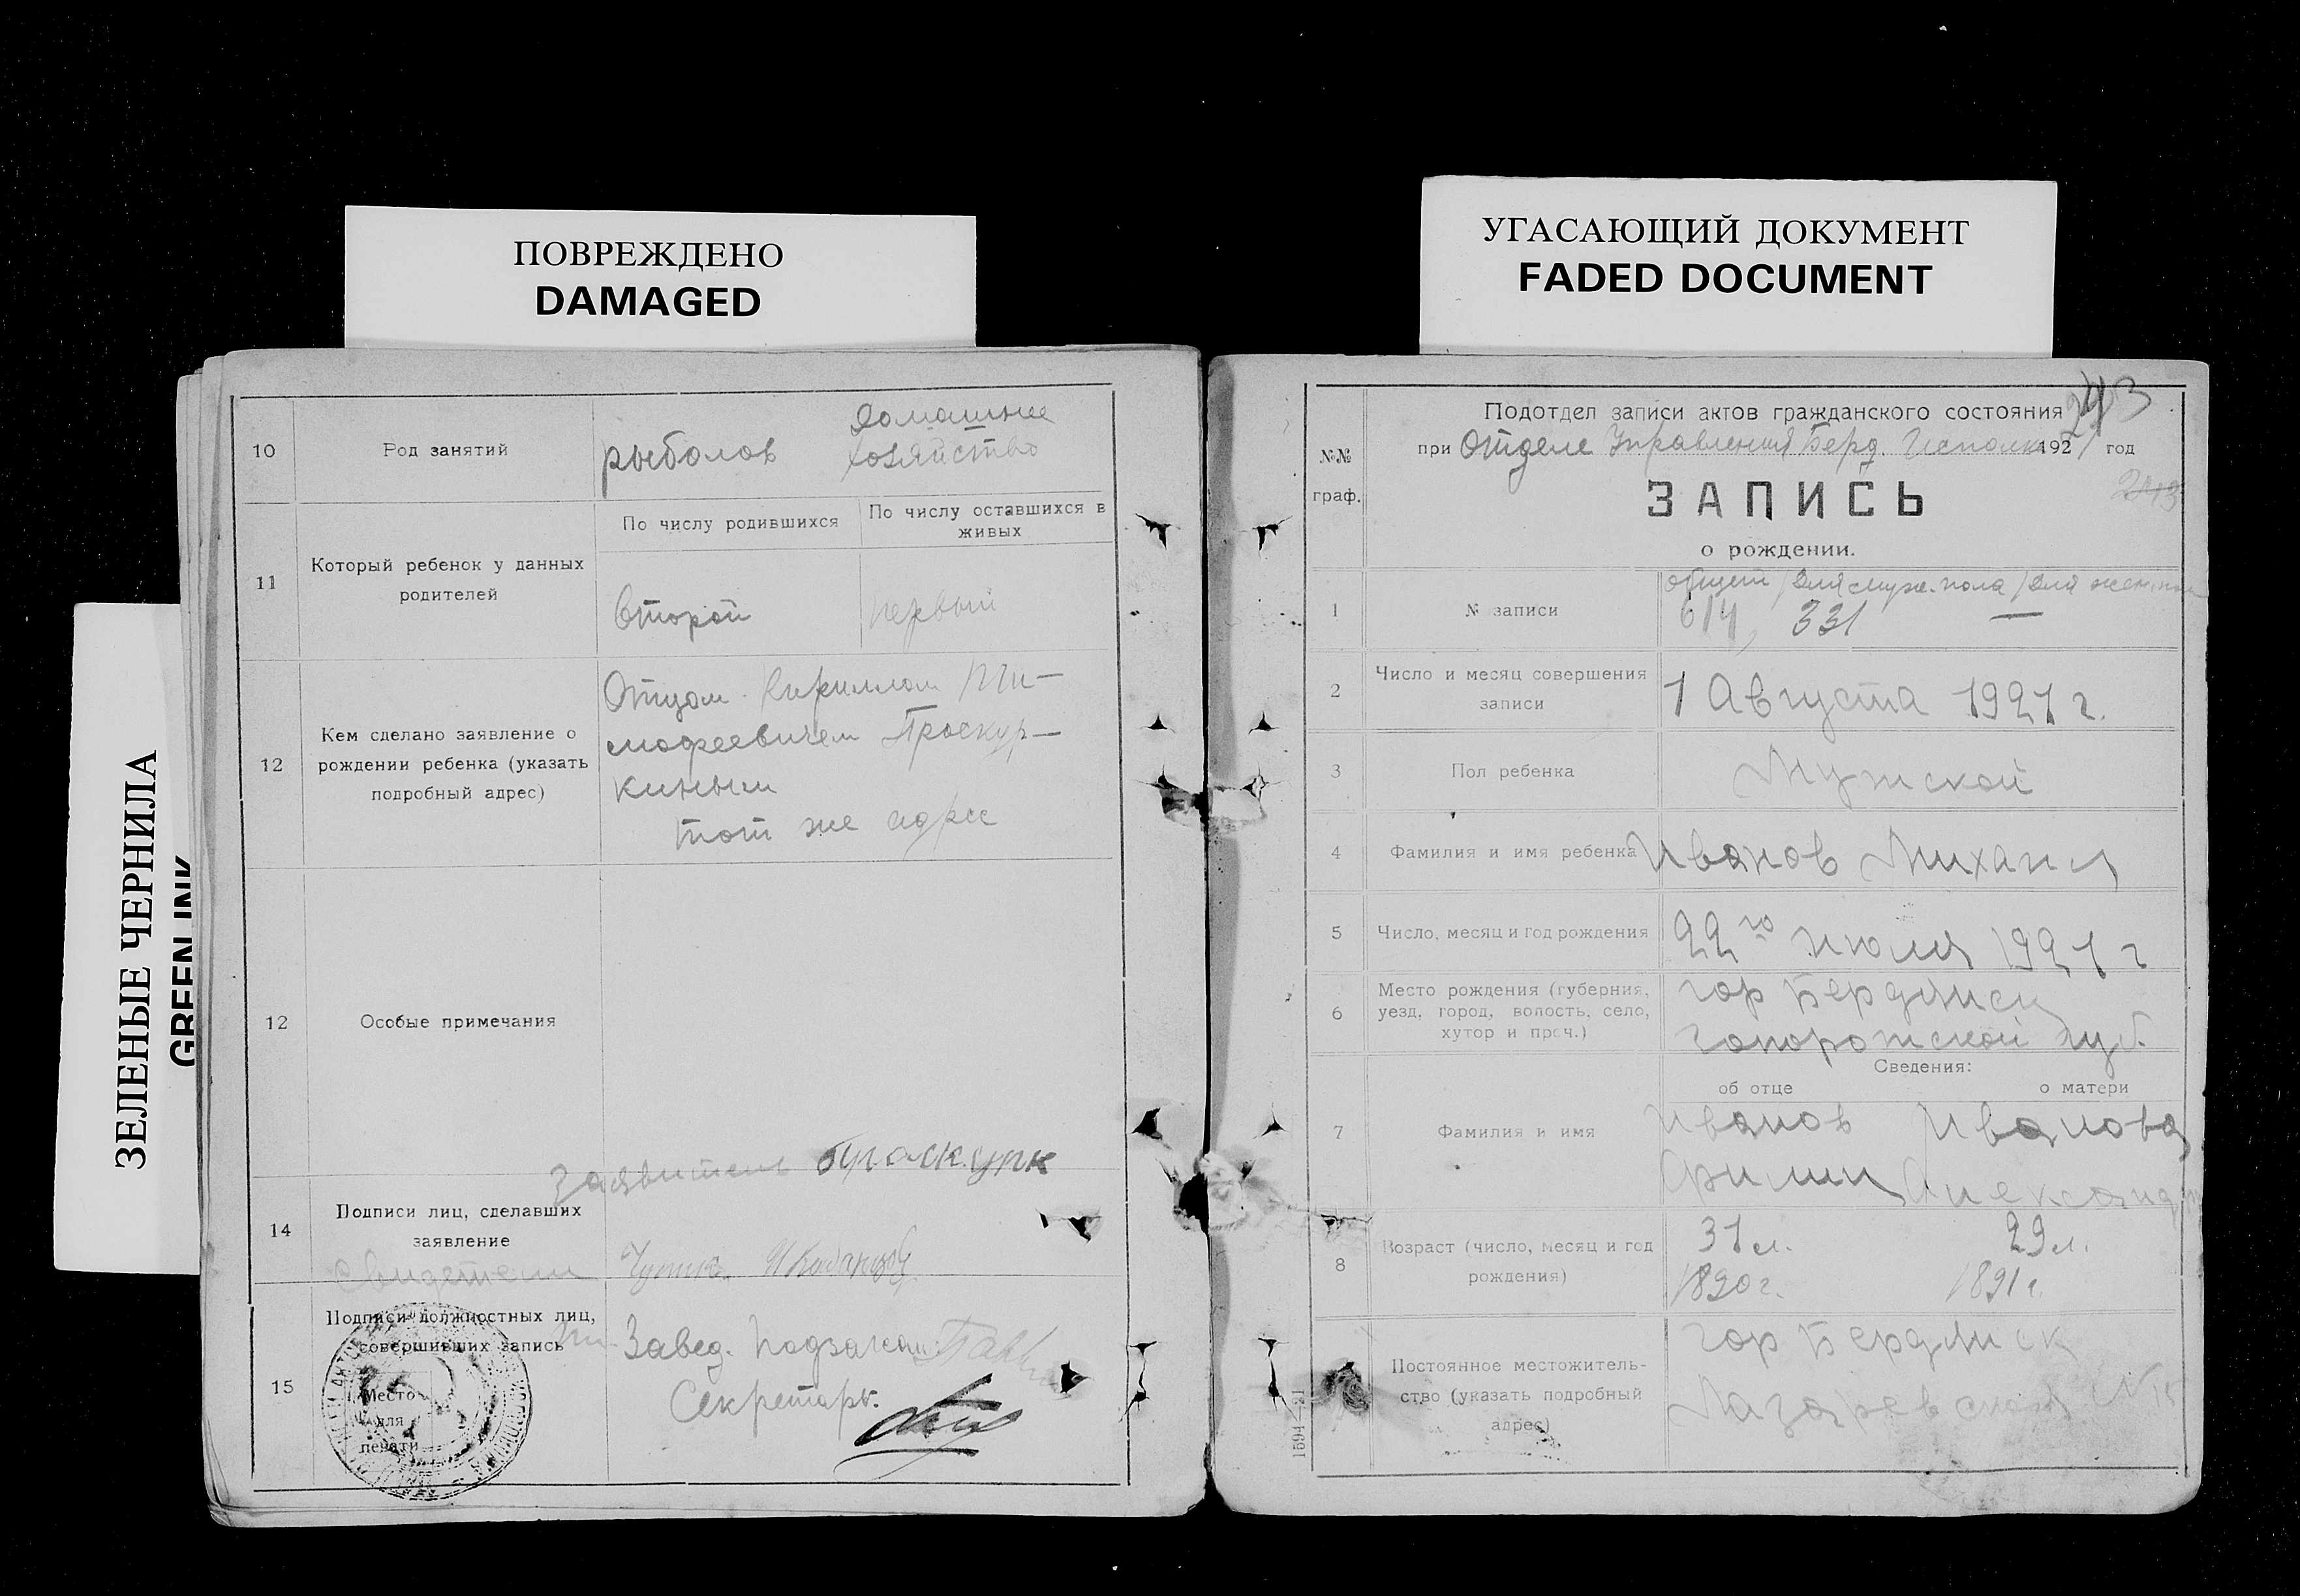 ПОВРЕЖДЕНО
DAMAGED
УГАСАЮЩИЙ ДОКУМЕНТ
FADED DOCUMENT
ЗЕЛЕНЫЕ ЧЕРНИЛА
GREEN INK
10
Род занятий
рыболов
домашнее
хозяйство
11
Который ребенок у данных
родителей
По числу родившихся
По числу оставшихся в
живых
второй
первый
12
Кем сделано заявление о
рождении ребенка (указать
подробный адрес)
Отцом Кириллом Ти-
мофеевичем Проскур-
киным
тот же адрес
12
Особые примечания
Заявитель
14
Подписи лиц, сделавших
заявление
свидетели
15
Подписи должностных лиц,
совершивших запись
Место
для
печати
Завед. Подзагсом
Секретарь
243
Подотдел записи актов гражданского состояния
при Отделе Управления Берд. Исполк. 1921 год
243
№№
граф.
ЗАПИСЬ
о рождении.
1
№ записи
общий / для муж. пола / для жен. пол
614, 331 —
2
Число и месяц совершения
записи
1 Августа 1921 г.
3
Пол ребенка
Мужской
4
Фамилия и имя ребенка
Иванов Михаил
5
Число, месяц и год рождения
22го июля 1921 г
6
Место рождения (губерния,
уезд, город, волость, село,
хутор и проч.)
гор Бердянск
Запорожской губ.
Сведения:
об отце
о матери
7
Фамилия и имя
Иванов
Иванова
Филип
8
Возраст (число, месяц и год
рождения)
31 л.
29 л.
1890 г.
1891 г.
Постоянное местожитель-
ство (указать подробный
адрес)
гор Бердянск
Лазаревская